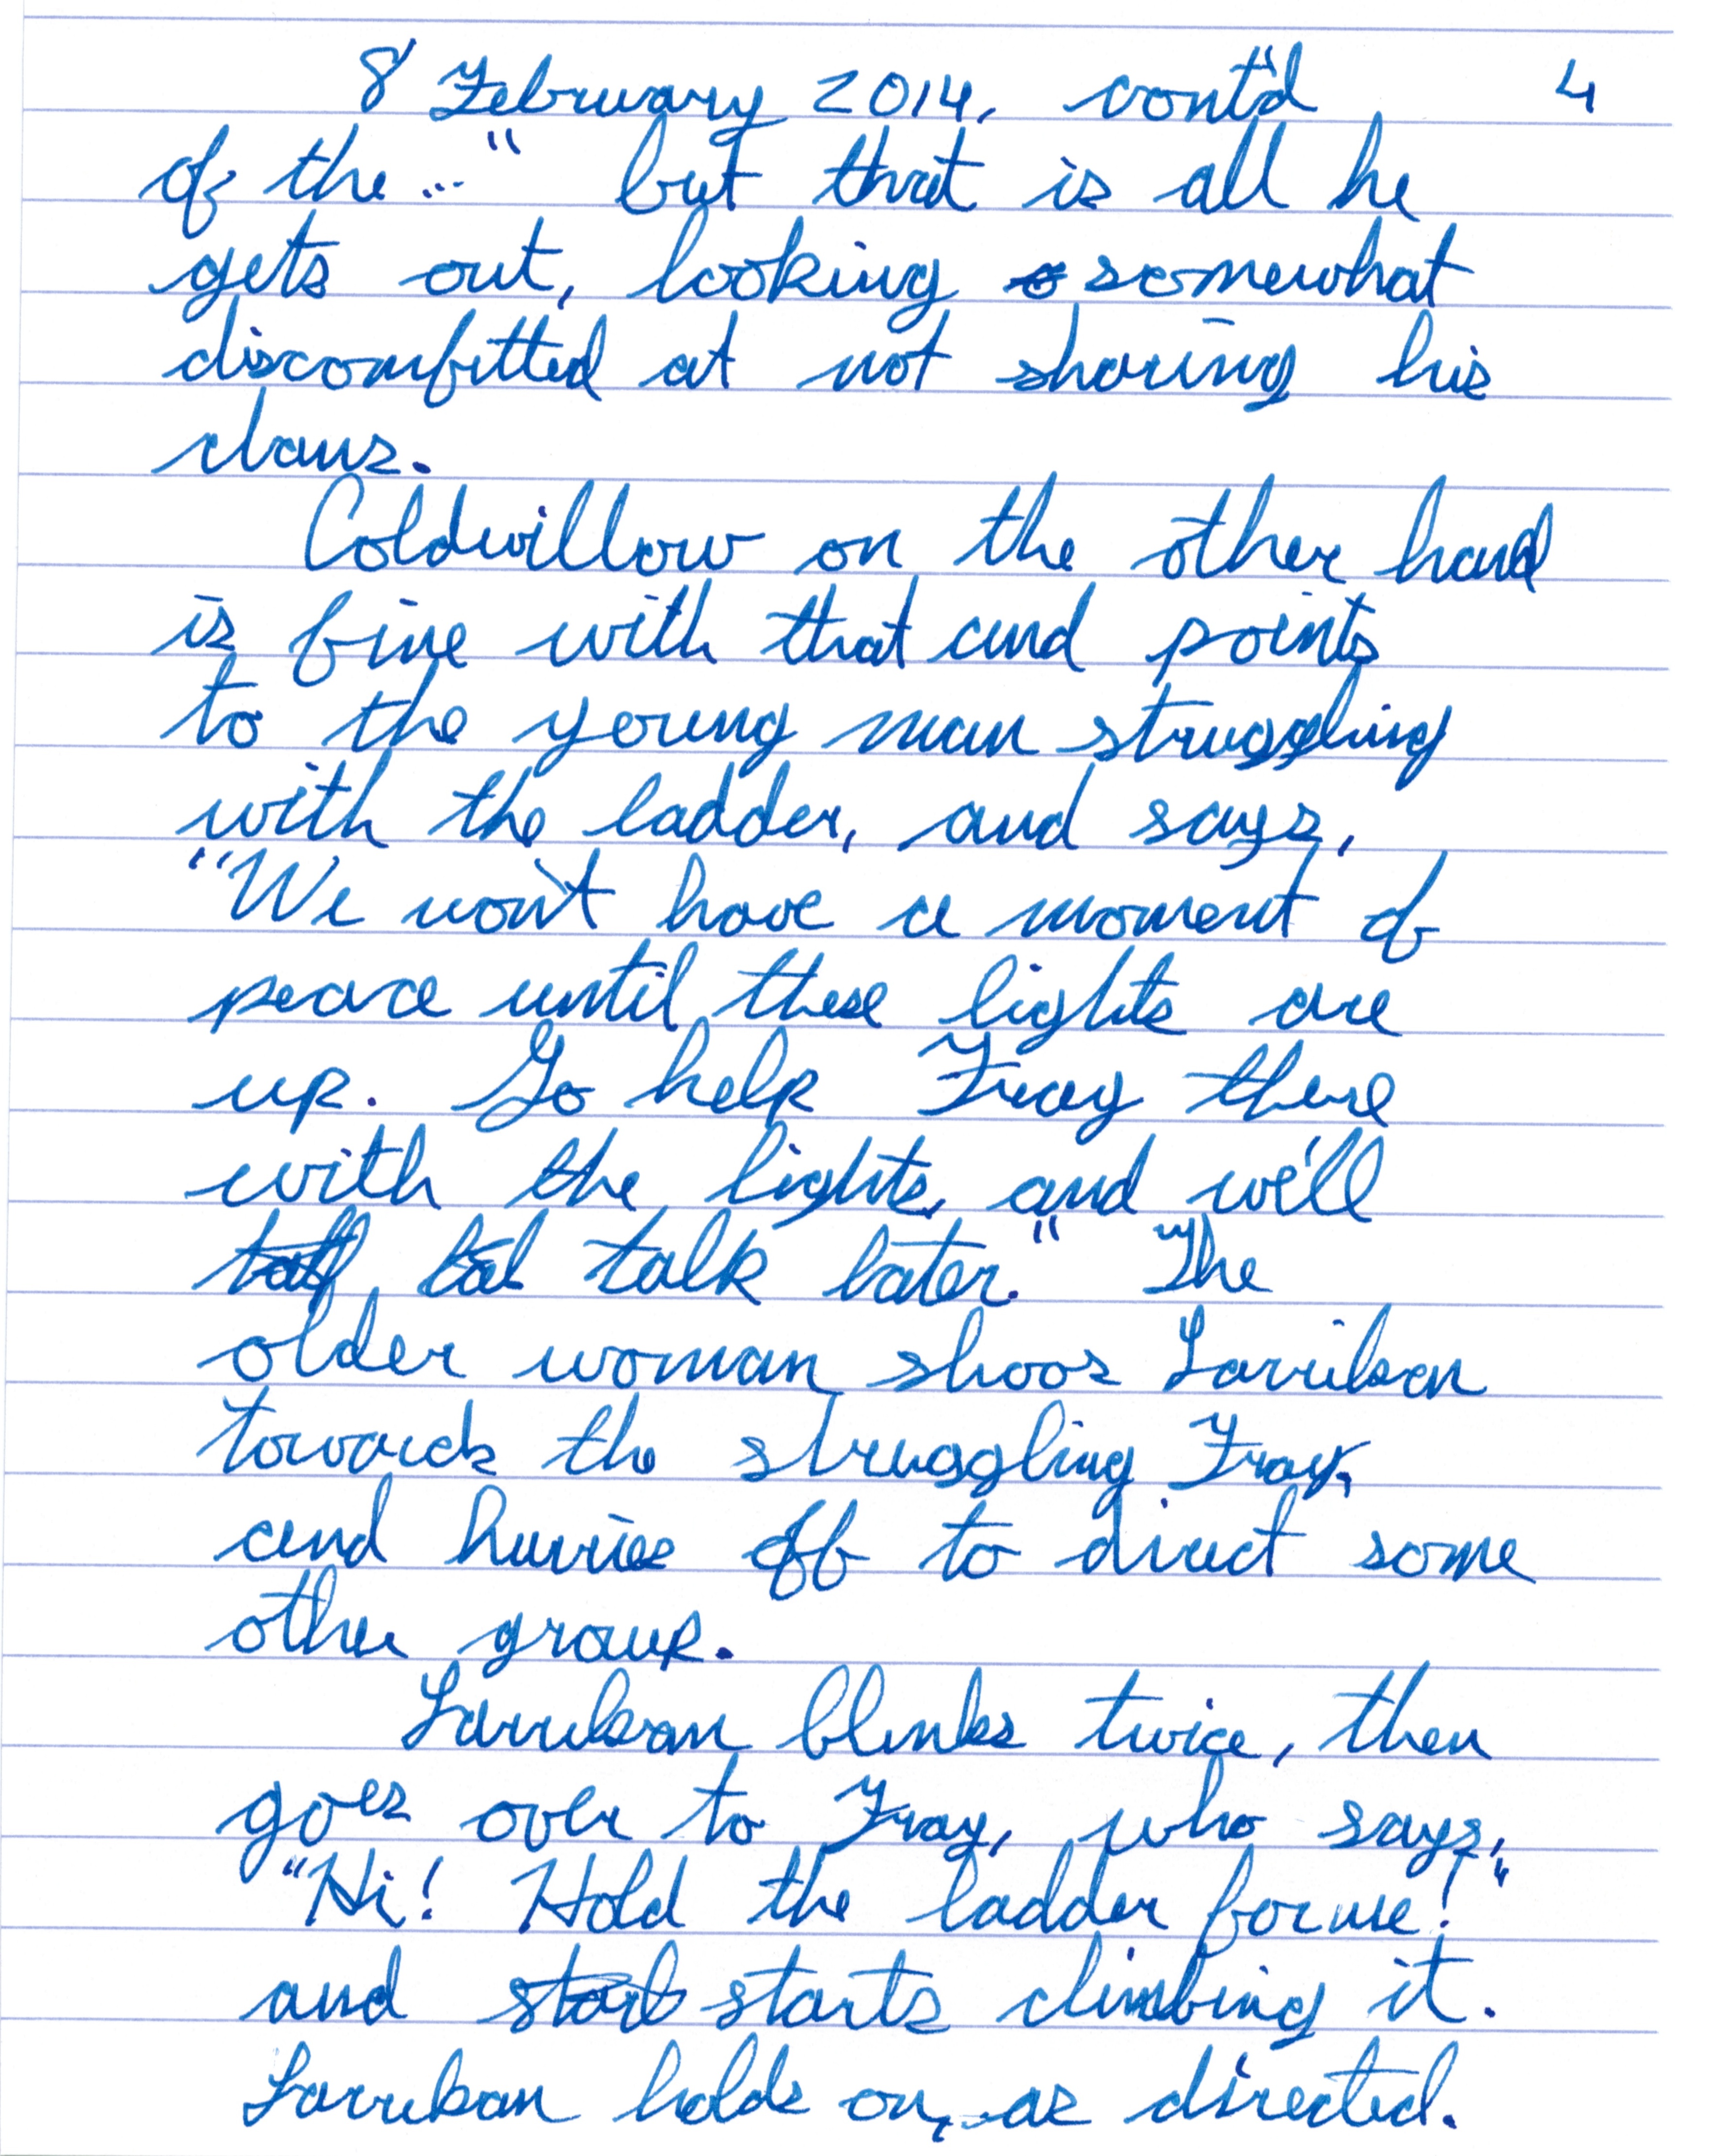 8 February 2014, cont'd 4
of the..." but that is all he
gets out, looking somewhat
discomfitted at not sharing his
claus.
Coldwillow on the other hand
is fine with that and points
to the young man struggling
with the ladder, and says,
"We won't have a moment of
peace until these lights are
up. Go help Fray there
with the lights, and we'll
talk later." The
older woman shoos Larrikan
towards the struggling Fray,
and hurries off to direct some
other group.
Larrikan blinks twice, then
goes over to Fray, who says,
"Hi! Hold the ladder for me!"
and starts climbing it.
Larrikan holds on, as directed.